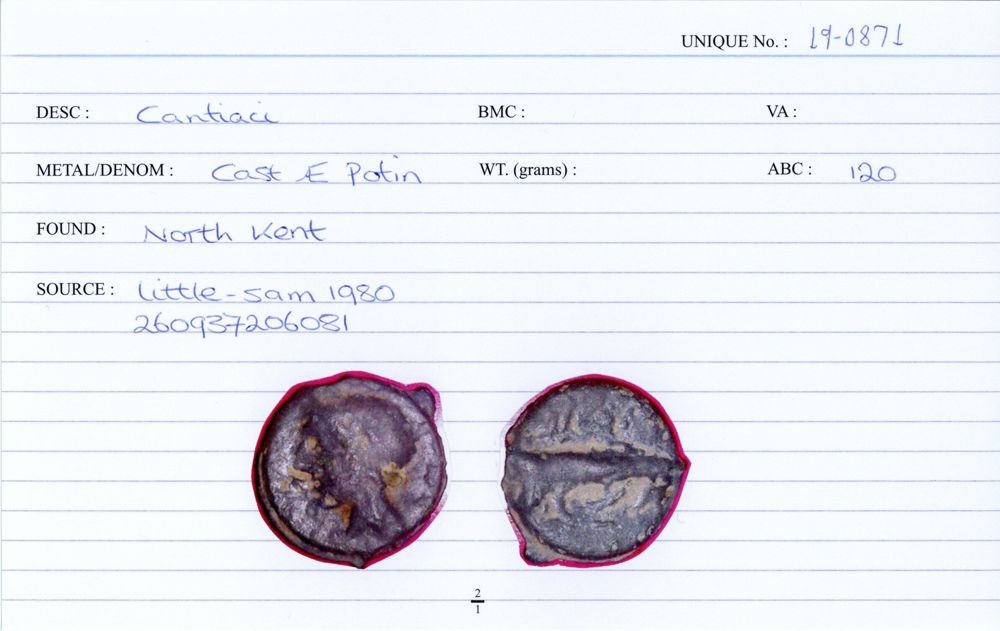 UNIQUE No. : 19-0871
DESC : Cantiaci BMC : VA :
METAL/DENOM : Cast Æ Potin WT. (grams) : ABC : 120
FOUND : North Kent
SOURCE : little-sam 1980
260937206081
2
1